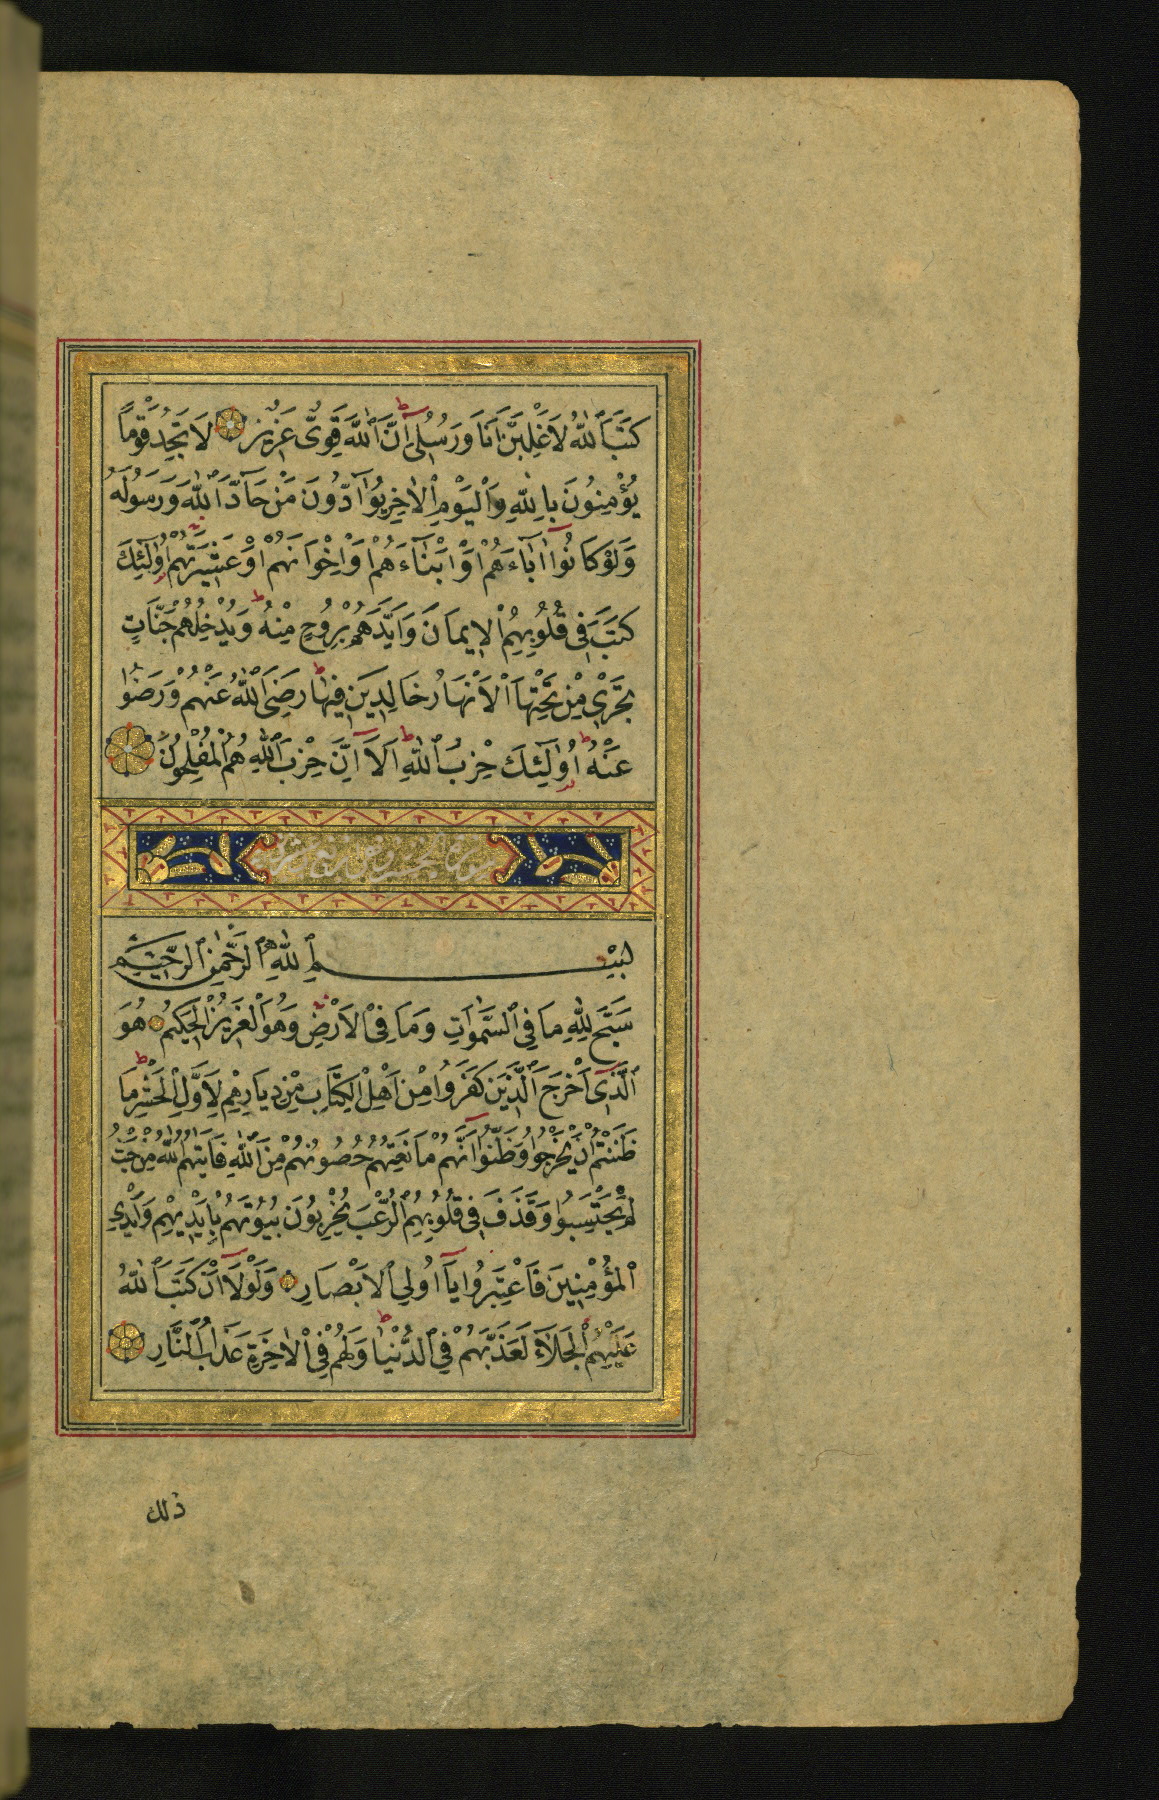 كَتَبَ ٱللّٰهُ لَاَغْلِبَنَّ اَنَا وَرُسُلٖى اِنَّ ٱللّٰهَ قَوِىٌّ عَزٖيزٌ لَا تَجِدُ قَوْمًا
يُؤْمِنُونَ بِاللّٰهِ وَٱلْيَوْمِ ٱلْاٰخِرِ يُوَآدُّونَ مَنْ حَآدَّ ٱللّٰهَ وَرَسُولَهُ
وَلَوْ كَانُوٓا اٰبَآءَهُمْ اَوْ اَبْنَآءَهُمْ اَوْ اِخْوَانَهُمْ اَوْ عَشٖيرَتَهُمْ اُولٰٓئِكَ
كَتَبَ فِى قُلُوبِهِمُ ٱلْاِيمَانَ وَاَيَّدَهُمْ بِرُوحٍ مِنْهُ وَيُدْخِلُهُمْ جَنَّاتٍ
تَجْرٖى مِنْ تَحْتِهَا ٱلْاَنْهَارُ خَالِدٖينَ فٖيهَا رَضِىَ ٱللّٰهُ عَنْهُمْ وَرَضُوا
عَنْهُ اُولٰٓئِكَ حِزْبُ ٱللّٰهِ اَلَآ اِنَّ حِزْبَ ٱللّٰهِ هُمُ ٱلْمُفْلِحُونَ
سورة الحشر
بِسْمِ ٱللّٰهِ ٱلرَّحْمٰنِ ٱلرَّحٖيمِ
سَبَّحَ لِلّٰهِ مَا فِى ٱلسَّمٰوَاتِ وَمَا فِى ٱلْاَرْضِ وَهُوَ ٱلْعَزٖيزُ ٱلْحَكٖيمُ هُوَ
ٱلَّذٖٓى اَخْرَجَ ٱلَّذٖينَ كَفَرُوا مِنْ اَهْلِ ٱلْكِتَابِ مِنْ دِيَارِهِمْ لِاَوَّلِ ٱلْحَشْرِ مَا
ظَنَنْتُمْ اَنْ يَخْرُجُوا وَظَنُّوٓا اَنَّهُمْ مَانِعَتُهُمْ حُصُونُهُمْ مِنَ ٱللّٰهِ فَاَتٰيهُمُ ٱللّٰهُ مِنْ حَيْثُ
لَمْ يَحْتَسِبُوا وَقَذَفَ فٖى قُلُوبِهِمُ ٱلرُّعْبَ يُخْرِبُونَ بُيُوتَهُمْ بِاَيْدٖيهِمْ وَاَيْدِى
ٱلْمُؤْمِنٖينَ فَاعْتَبِرُوا يَآ اُولِى ٱلْاَبْصَارِ وَلَوْلَآ اَنْ كَتَبَ ٱللّٰهُ
عَلَيْهِمُ ٱلْجَلَآءَ لَعَذَّبَهُمْ فِى ٱلدُّنْيَا وَلَهُمْ فِى ٱلْاٰخِرَةِ عَذَابُ ٱلنَّارِ
ذلك